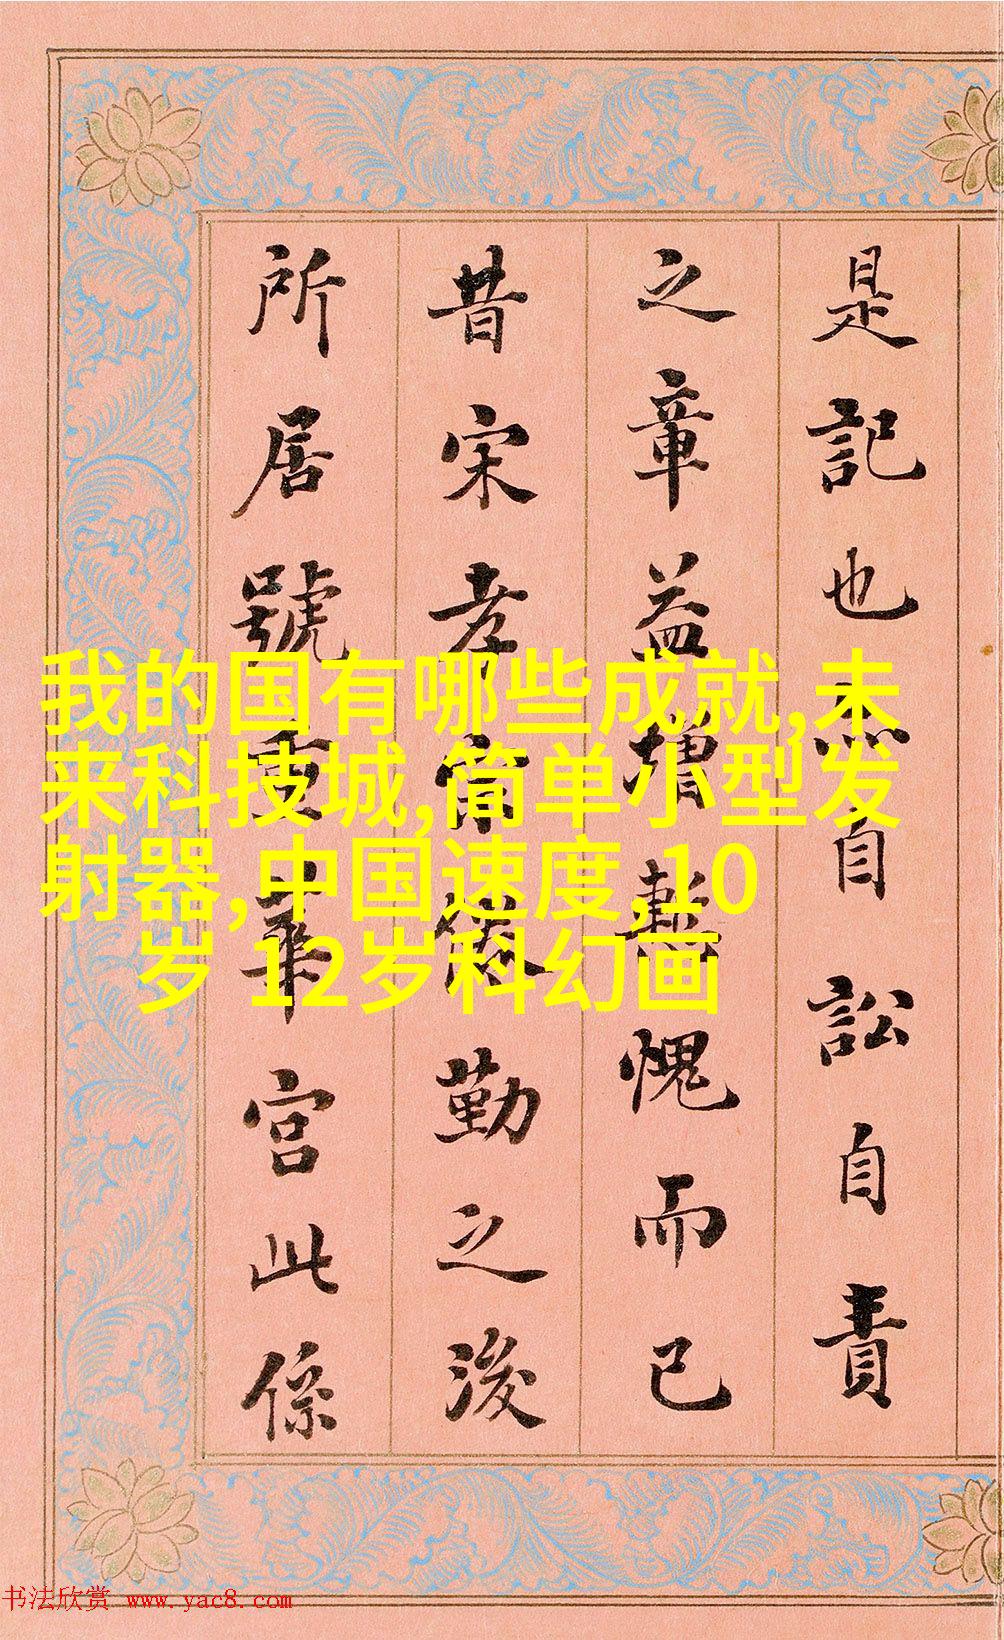 是記也不自訟自責
之章益增慙愧而已
昔宋孝宗倦勤之後
所居號重華宮此係
我的国有哪些成就,未
来科技城,简单小型发
射器,中国速度,10
岁,12岁科幻画
书法欣赏 www.yac8.com